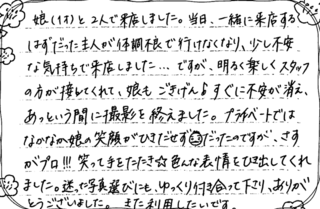 娘(1才)と2人で来店しました。当日、一緒に来店する
はずだった主人が体調不良で行けなくなり、少し不安
な気持ちで来店しました…ですが、明るく楽しくスタッフ
の方が接してくれて、娘もごきげん♪すぐに不安が消え、
あっという間に撮影を終えました。プライベートでは
なかなか娘の笑顔がひきだせず😥だったのですが、さす
がプロ!!!笑って手をたたき☆色んな表情をひき出してくれ
ました。迷った写真選びにも、ゆっくり付き合って下さり、ありが
とうございました。また利用したいです。